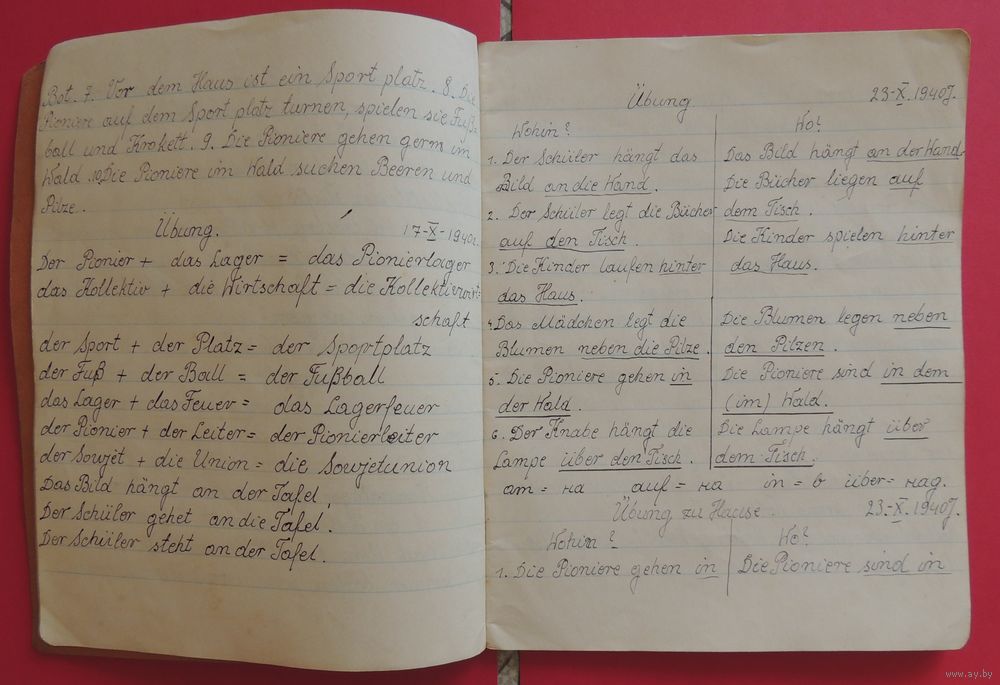 Bot. 7. Vor dem Haus ist ein Sport platz. 8. Die
Pioniere auf dem Sport platz turnen, spielen sie Fuß-
ball und Krokett. 9. Die Pioniere gehen germ im
Wald. 10. Die Pioniere im Wald suchen Beeren und
Pilze.
Übung. 17-X-1940.
Der Pionier + das Lager = das Pionierlager
das Kollektiv + die Wirtschaft = die Kollektivwirt-
schaft
der Sport + der Platz = der Sportplatz
der Fuß + der Ball = der Fußball
das Lager + das Feuer = das Lagerfeuer
der Pionier + der Leiter = der Pionierleiter
der Sowjet + die Union = die Sowjetunion
Das Bild hängt an der Tafel.
Der Schüler gehet an die Tafel.
Der Schüler steht an der Tafel.
Übung 23-X.1940J.
Wohin?
1. Der Schüler hängt das
Bild an die Wand.
2. Der Schüler legt die Bücher
auf den Tisch.
3. Die Kinder laufen hinter
das Haus.
4. Das Mädchen legt die
Blumen neben die Pilze.
5. Die Pioniere gehen in
der Wald.
6. Der Knabe hängt die
Lampe über den Tisch.
Wo?
Das Bild hängt an der Wand.
Die Bücher liegen auf
dem Tisch.
Die Kinder spielen hinter
das Haus.
Die Blumen legen neben
den Pilzen.
Die Pioniere sind in dem
(im) Wald.
Die Lampe hängt über
dem Tisch.
am = на auf = на in = в über = над.
Übung zu Hause. 23.-X.1940J.
Wohin?
1. Die Pioniere gehen in
Wo?
Die Pioniere sind in
www.ay.by